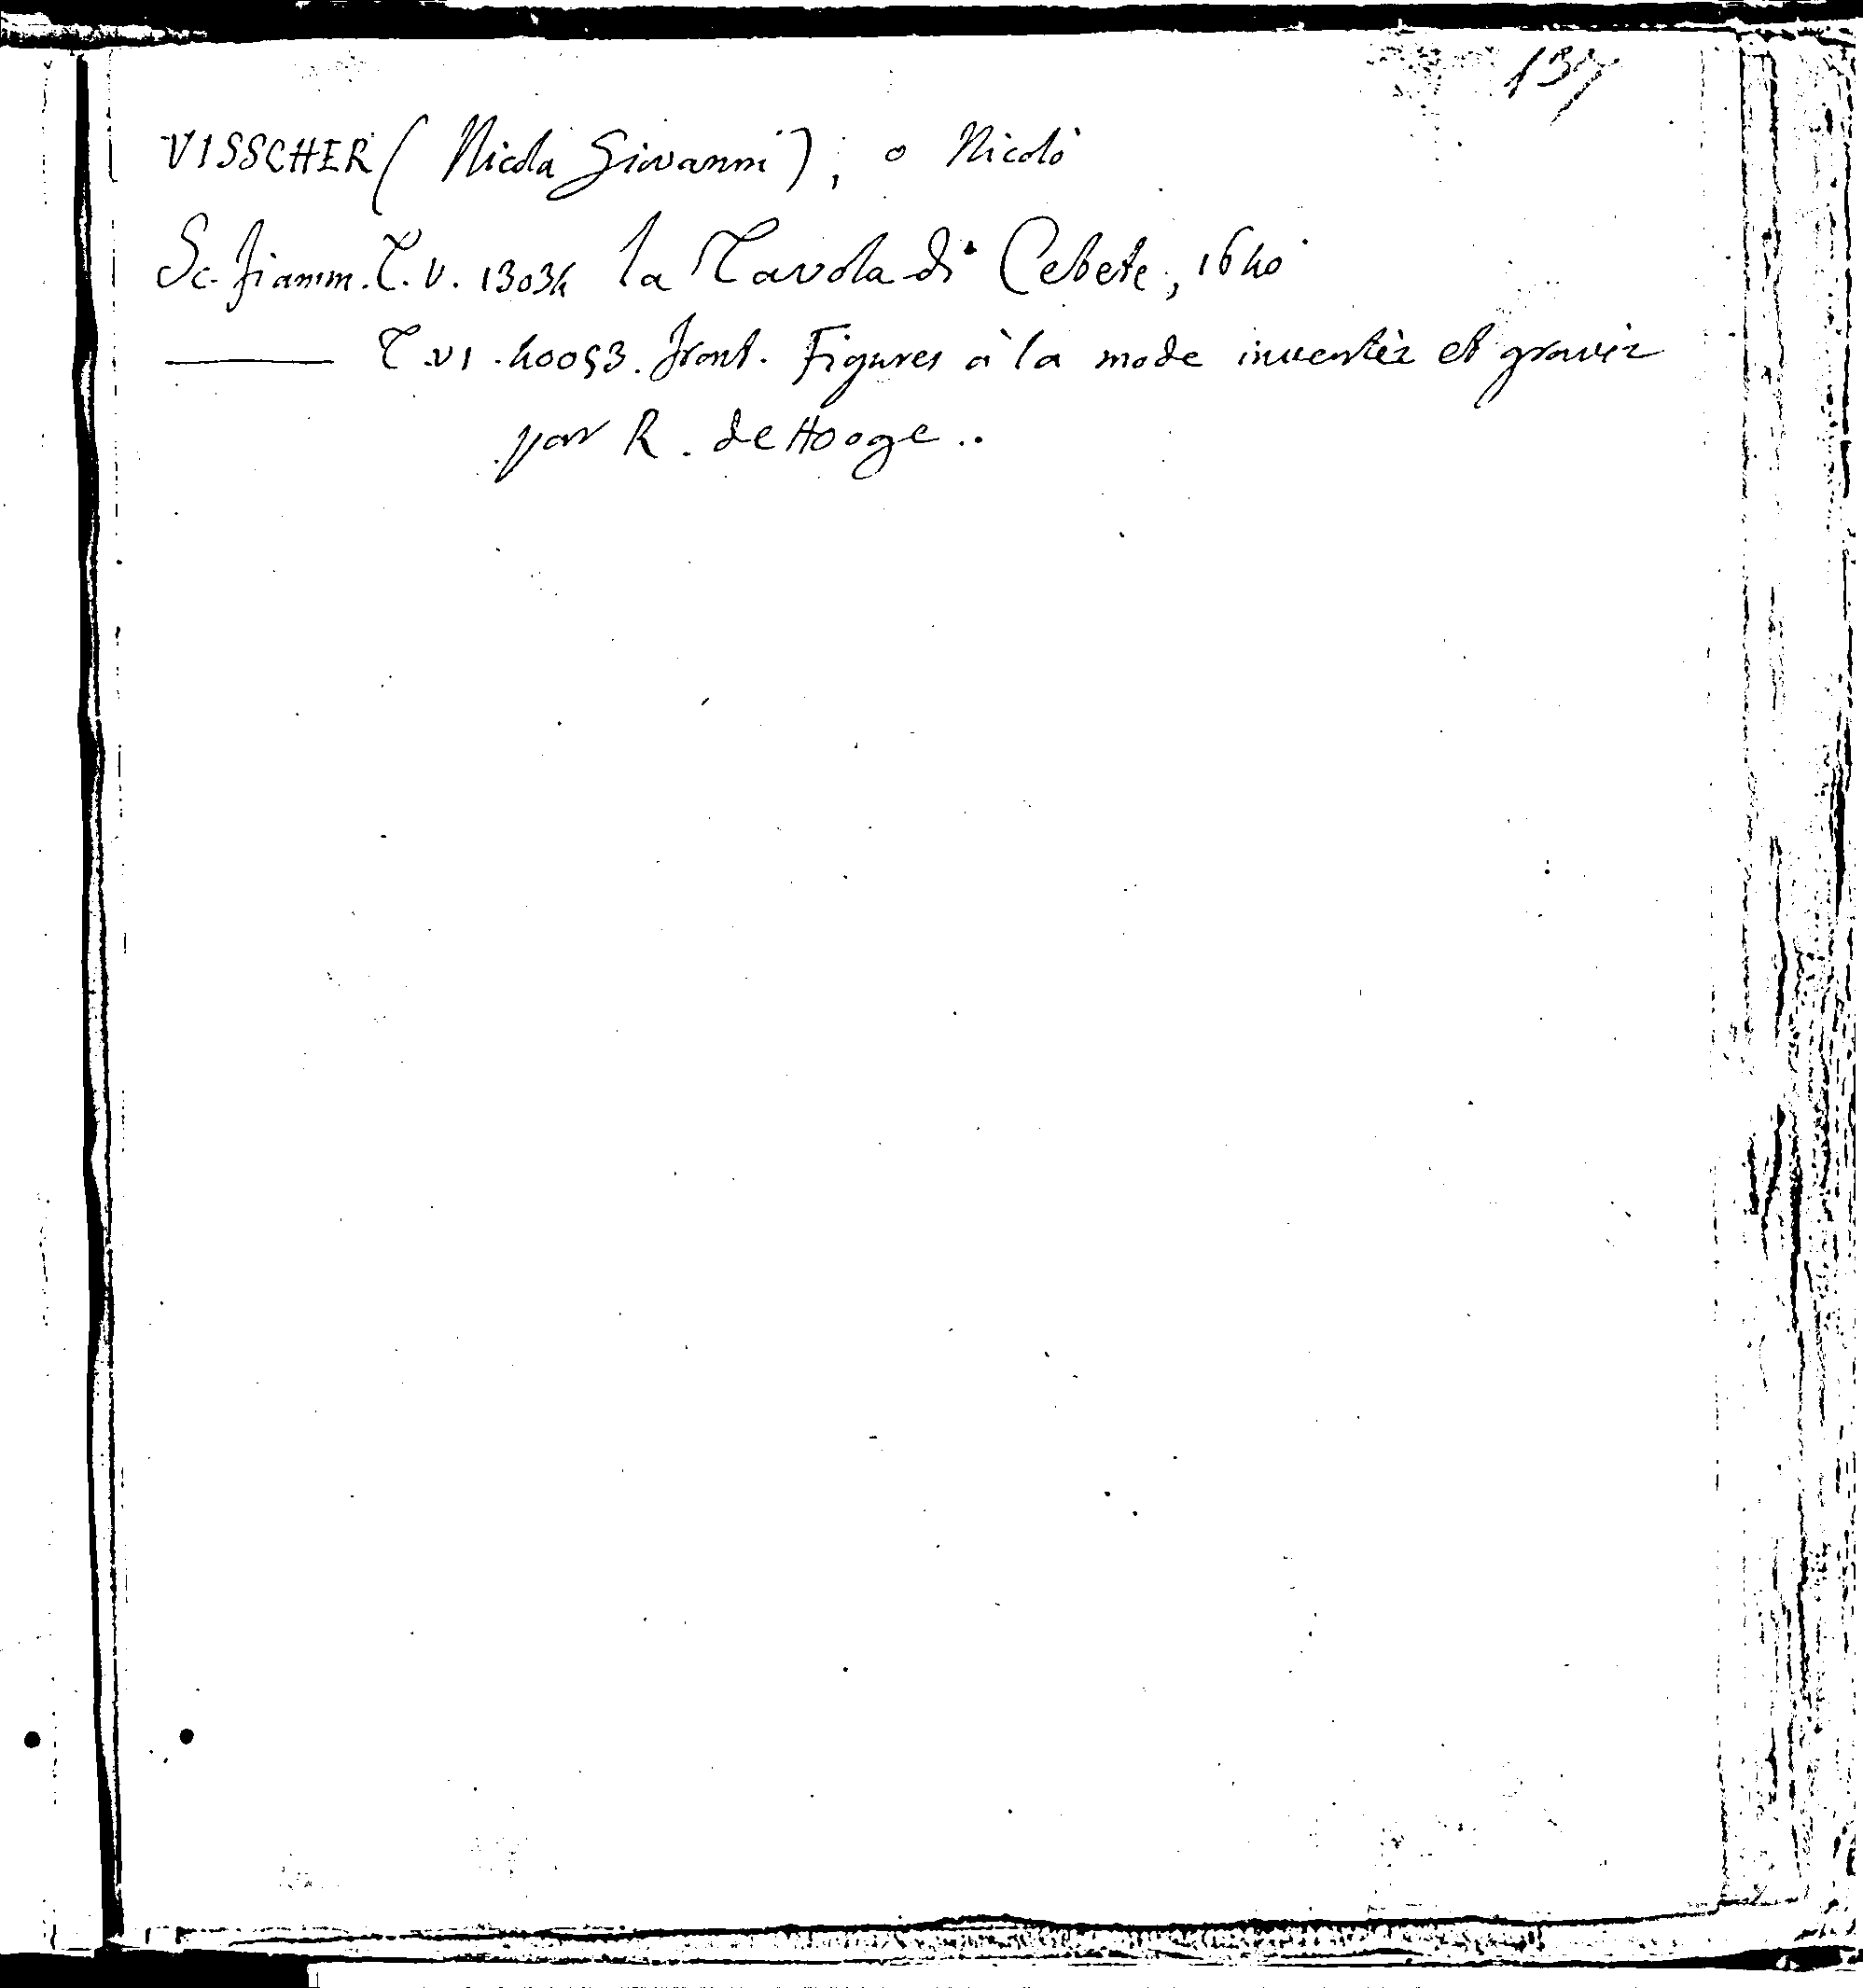 137
VISSCHER (Nicola Giovanni), o Nicolò
Sc. fiamm. T. V. 13034 la Tavola di Cebete, 1640
——— T. VI. 40053. front. Figures à la mode inventèz et gravéz
par R. de Hooge..